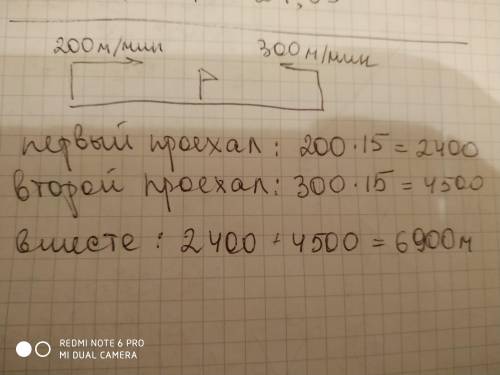 200м/мин 300м/мин
первый проехал: 200·15=2400
второй проехал: 300·15=4500
вместе: 2400+4500=6900м
REDMI NOTE 6 PRO
MI DUAL CAMERA